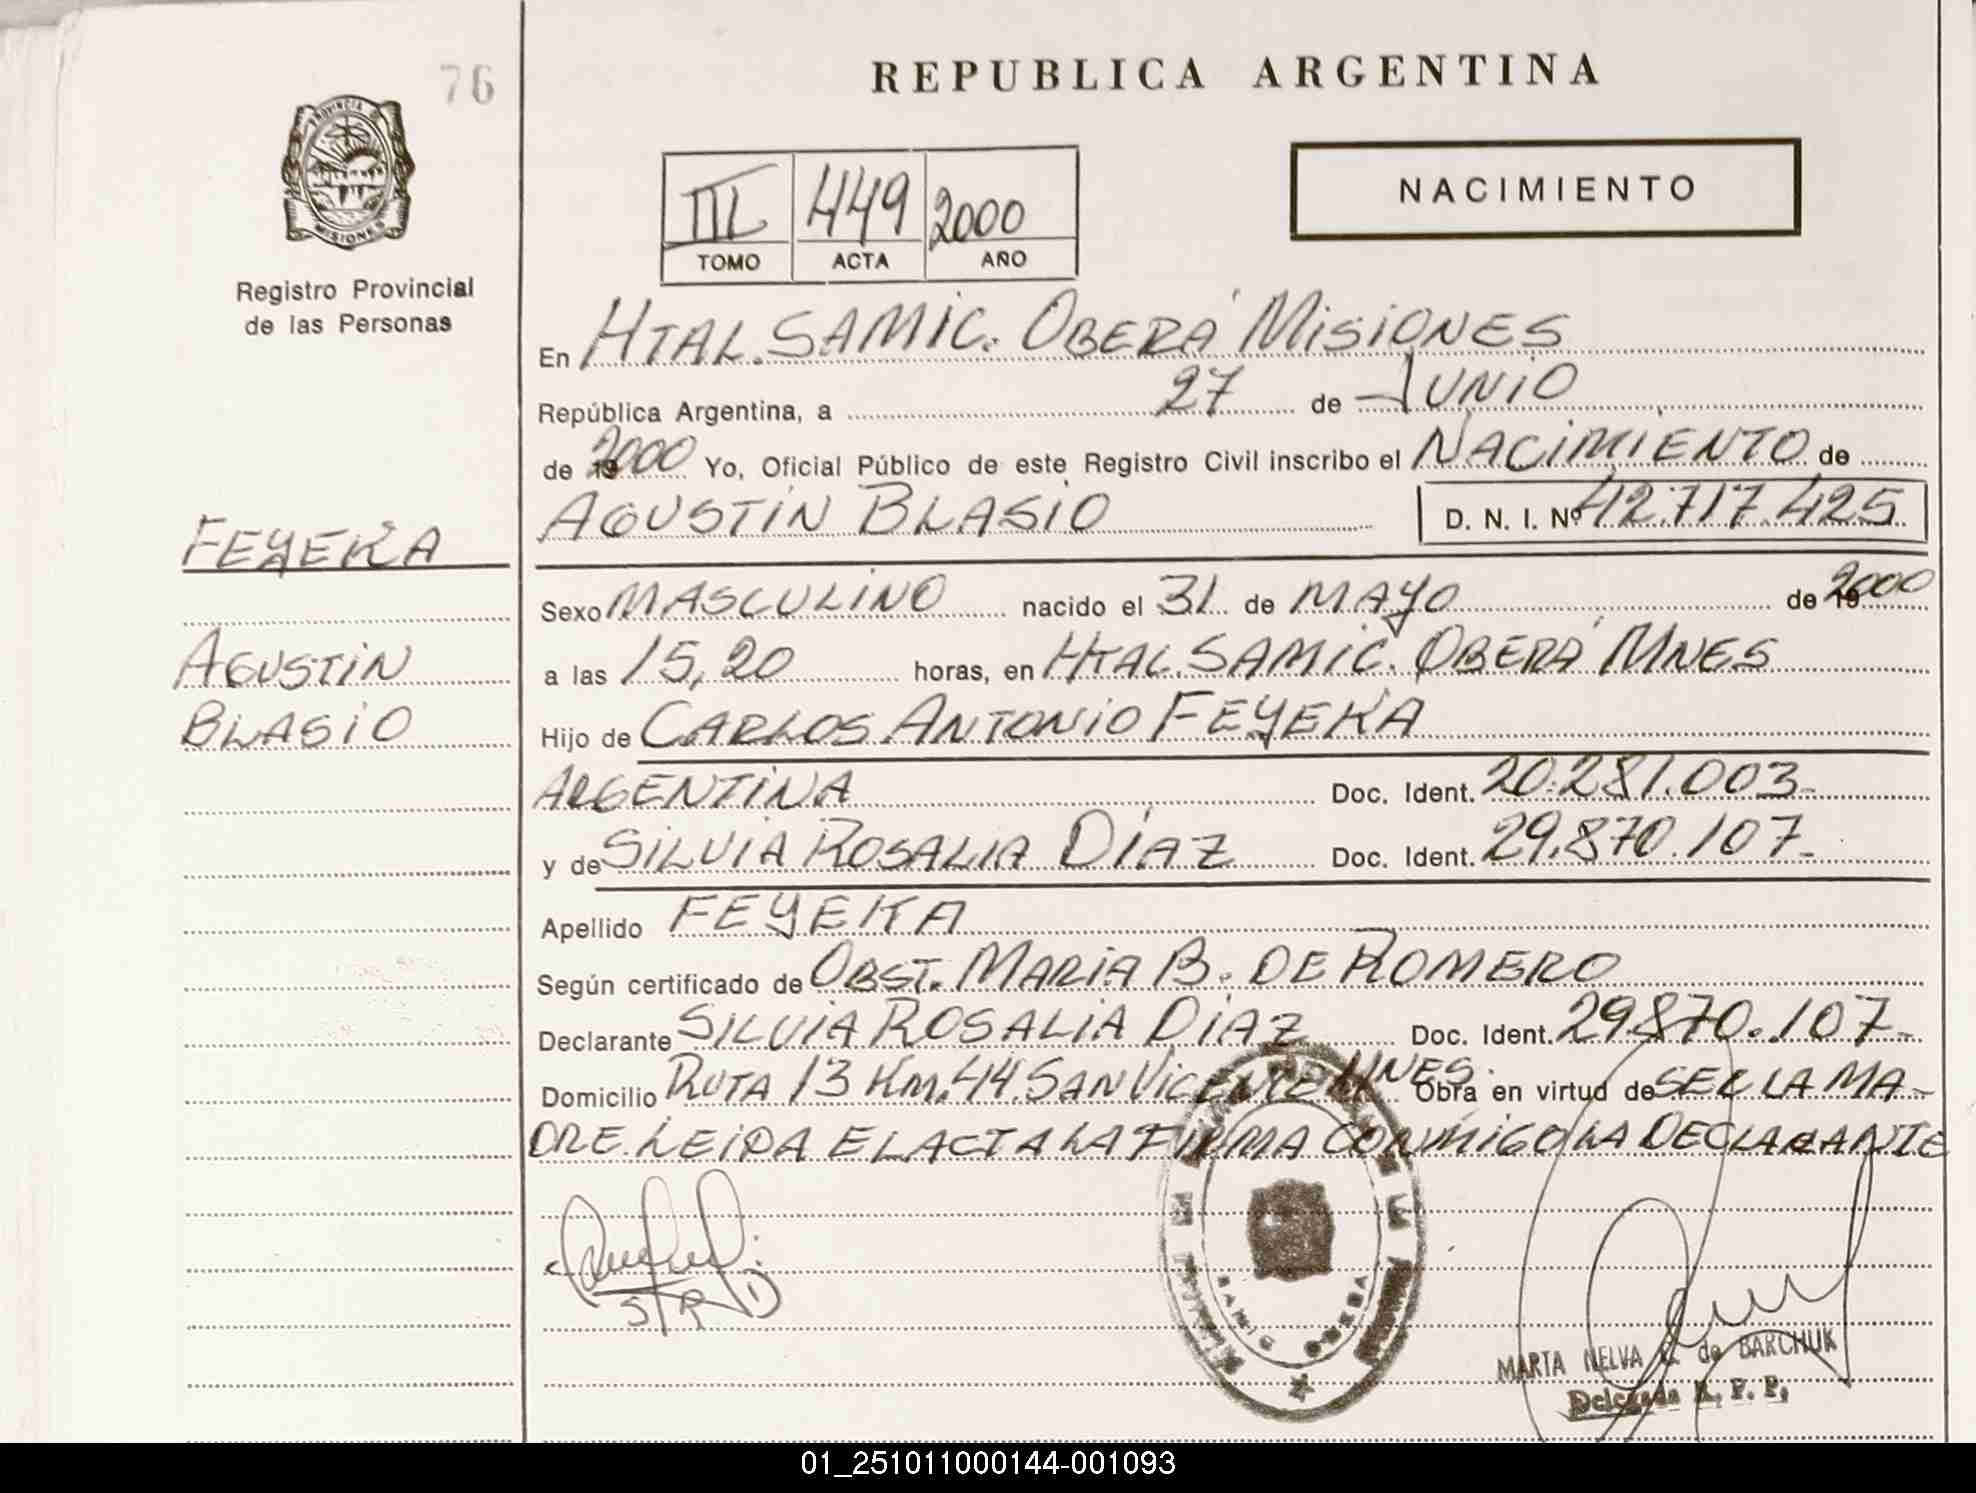 76
REPUBLICA ARGENTINA
PROVINCIA
MISIONES
Registro Provincial
de las Personas
III 449 2000
TOMO ACTA AÑO
NACIMIENTO
En HTAL. SAMIC. OBERÁ MISIONES
República Argentina, a 27 de JUNIO
de 2000 Yo, Oficial Público de este Registro Civil inscribo el NACIMIENTO de
AGUSTIN BLASIO D. N. I. Nº 42.717.425
FEYEKA
Sexo MASCULINO nacido el 31 de MAYO de 2000
AGUSTIN
a las 15,20 horas, en HTAL. SAMIC. OBERÁ MNES
BLASIO
Hijo de CARLOS ANTONIO FEYEKA
ARGENTINA Doc. Ident. 20.281.003-
y de SILVIA ROSALIA DÍAZ Doc. Ident. 29.870.107-
Apellido FEYEKA
Según certificado de OBST. MARIA B. DE ROMERO
Declarante SILVIA ROSALIA DIAZ Doc. Ident. 29.870.107-
Domicilio RUTA 13 KM.44.SAN VICENTE MNES. Obra en virtud de SER LA MA-
DRE. LEIDA EL ACTA LA FIRMA CONMIGO LA DECLARANTE
S R D
MARTA NELVA de BARCHUK
Delegada R. P. P.
01_251011000144-001093